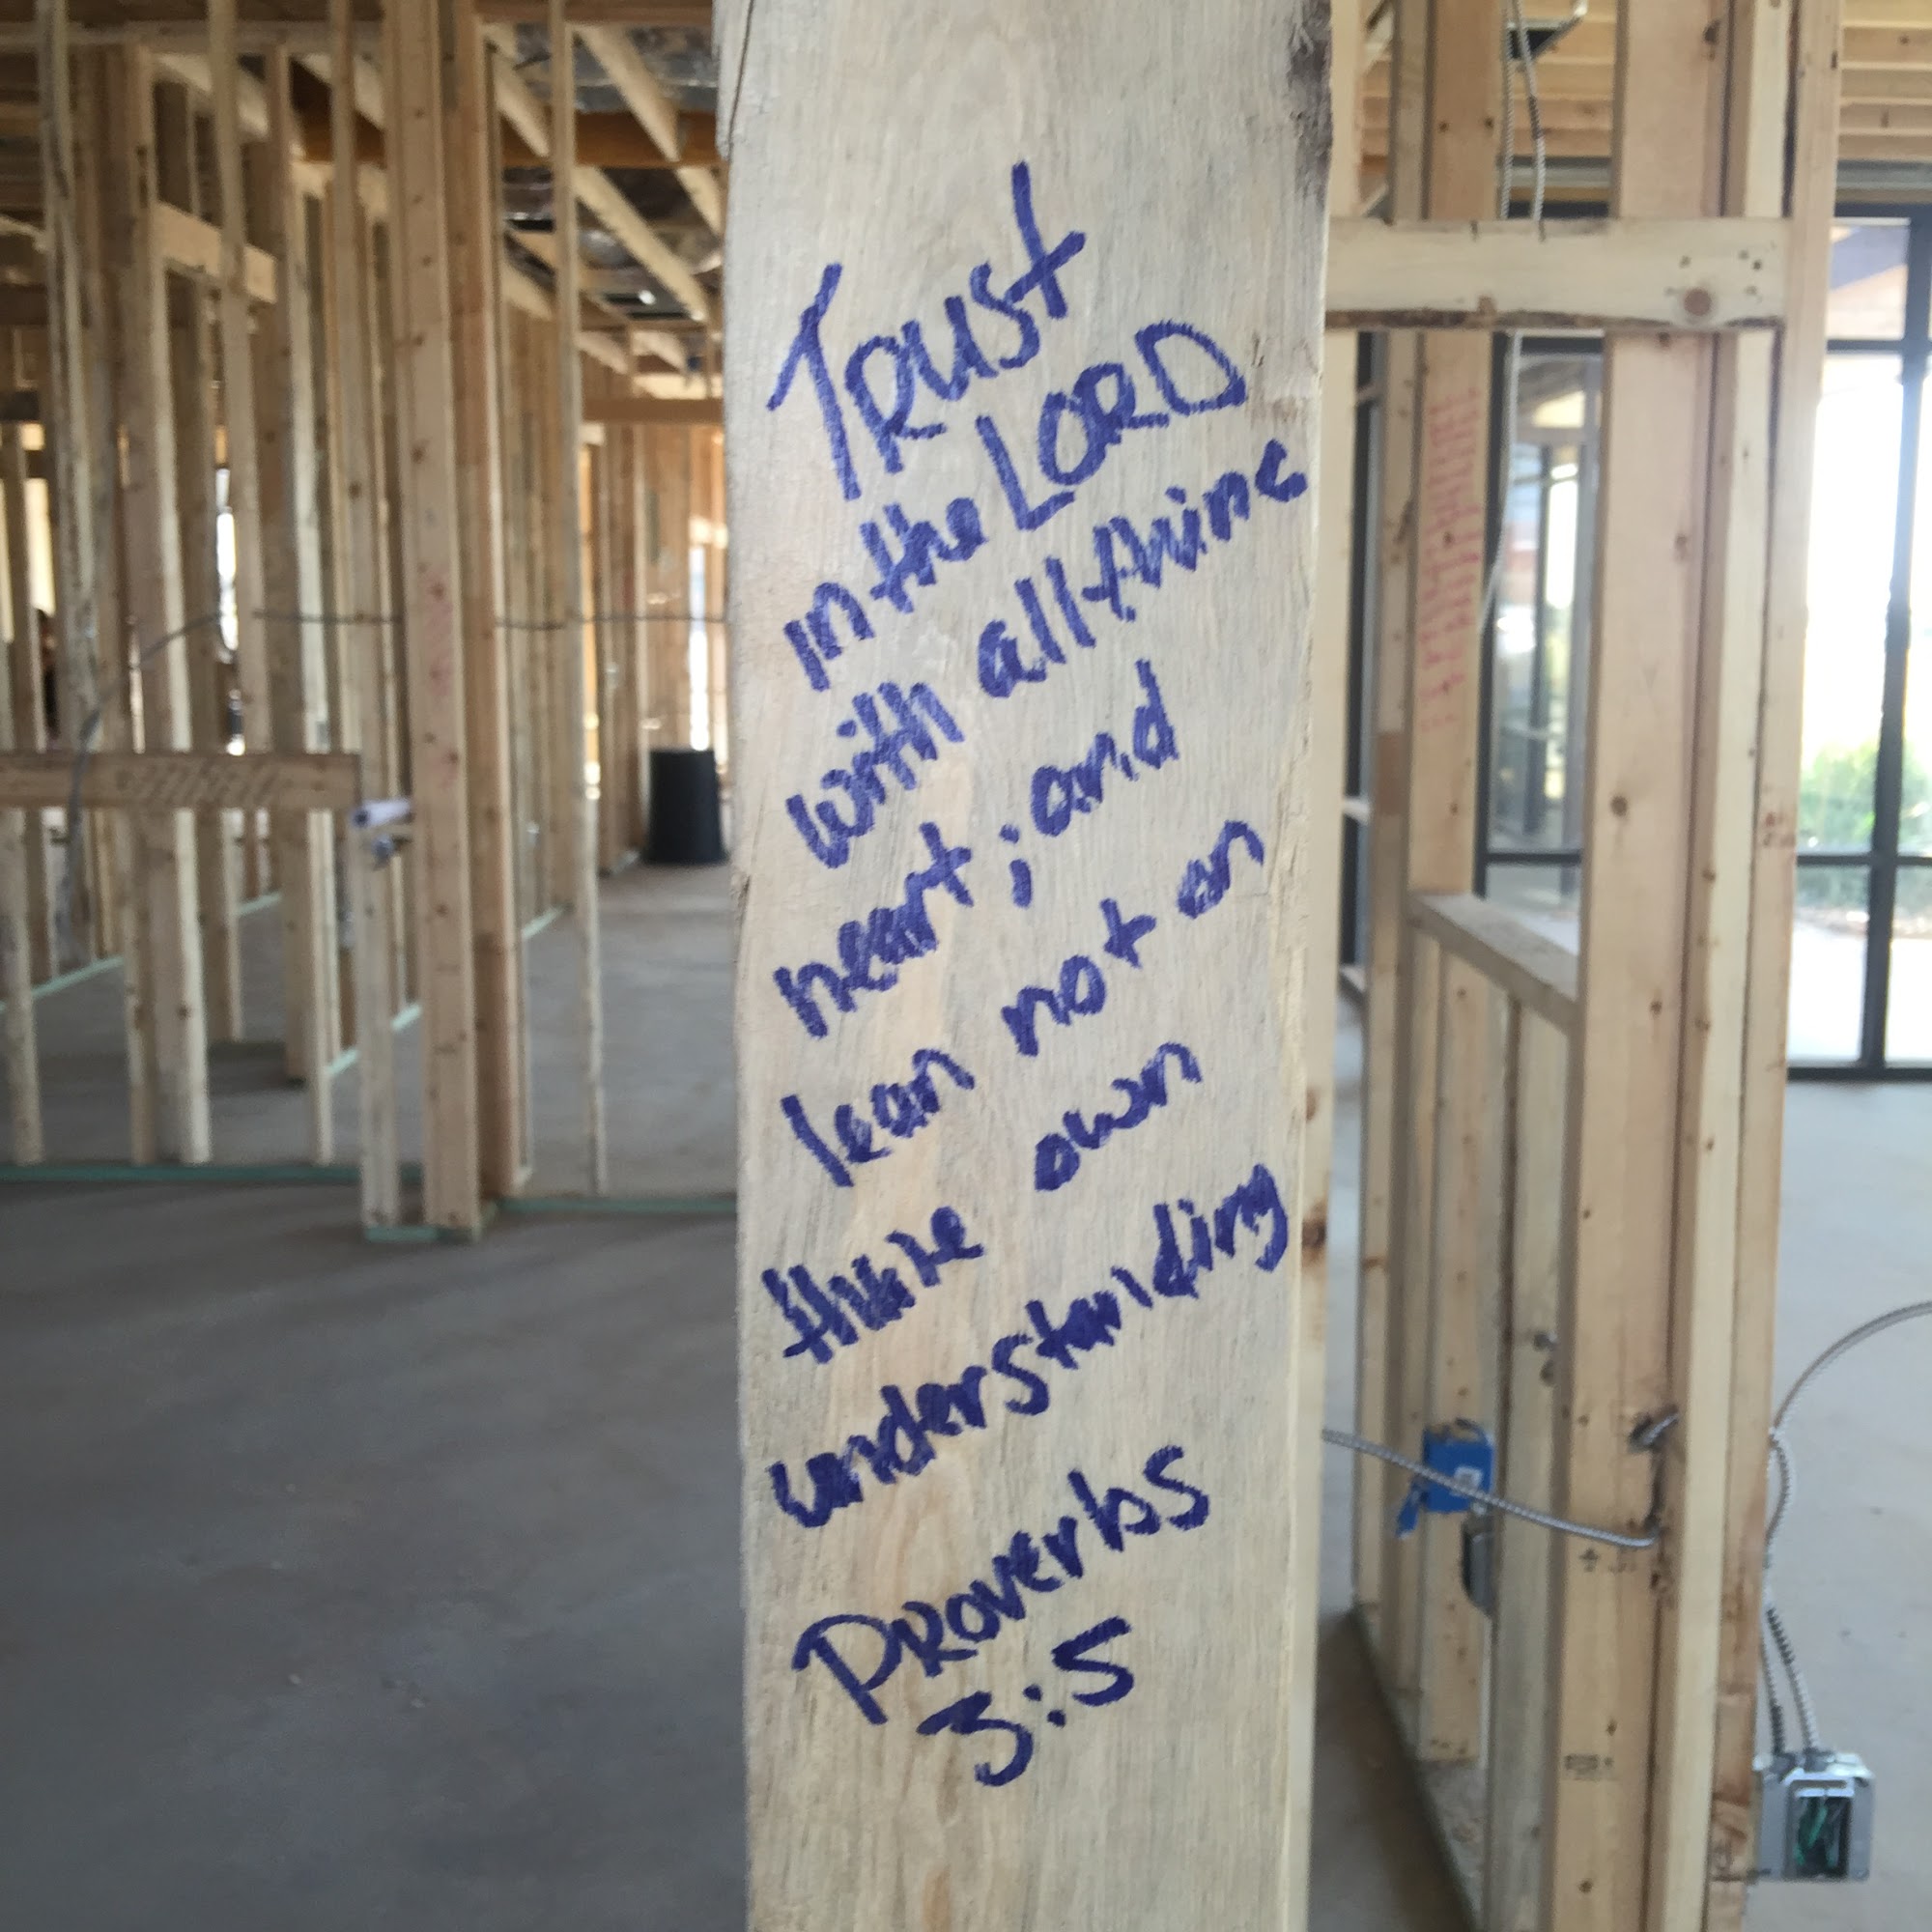 Trust
in the LORD
with all thine
heart ; and
lean not on
thine own
understanding
Proverbs
3:5